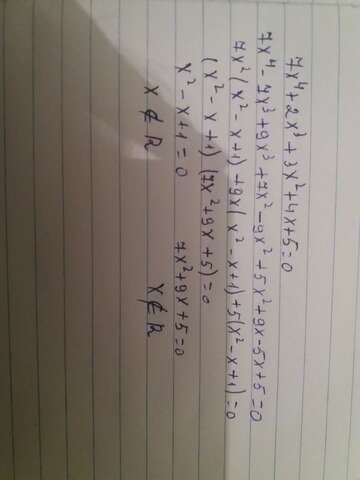 7x⁴+2x³+3x²+4x+5=0
7x⁴-7x³+9x³+7x²-9x²+5x²+9x-5x+5=0
7x²(x²-x+1)+9x(x²-x+1)+5(x²-x+1)=0
(x²-x+1)(7x²+9x+5)=0
x²-x+1=0 7x²+9x+5=0
x∉R x∉R